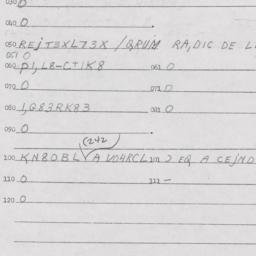 030 0
040 0 .
050 REJT3XL73X / QRUM RA,DIC DE L
051 0
060 P1,L8-CT1K8 061 0
070 0 071 0
080 1,Q83RK83 081 0
090 0 .
(242)
100 KN80BL A U04RCL 101 2 EQ A CEJND
110 0 111 -
120 0